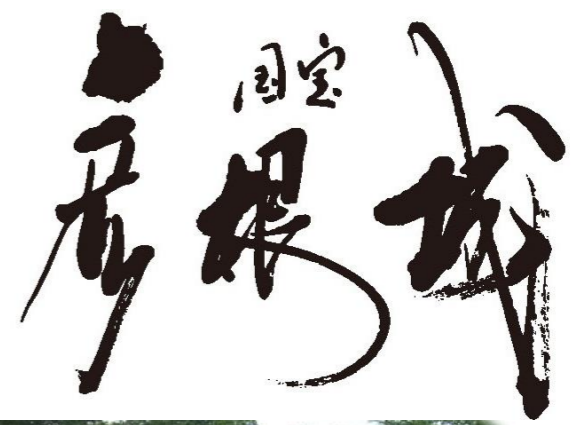 国宝
彦根城